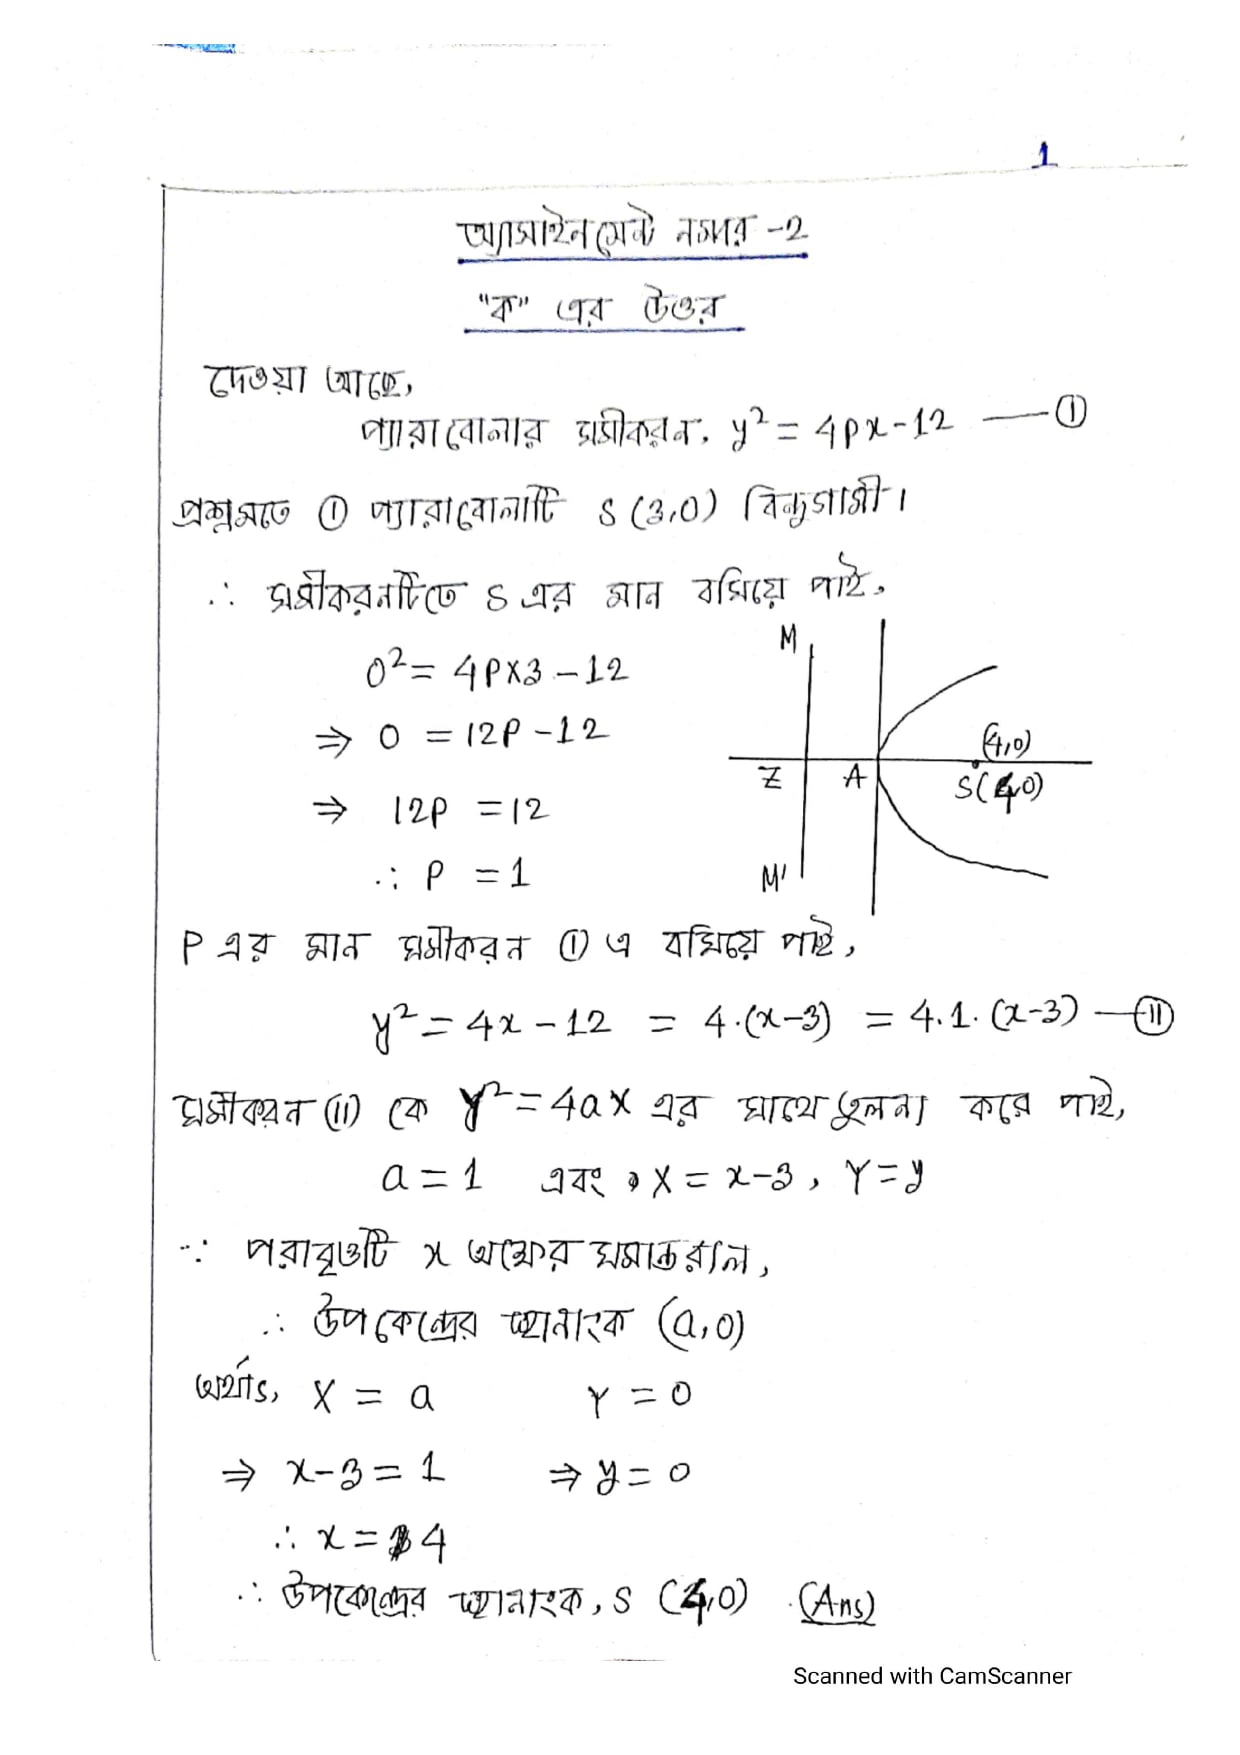 1
অ্যাসাইনমেন্ট নম্বর -2
"ক" এর উত্তর
দেওয়া আছে,
প্যারাবোলার সমীকরন, y² = 4px-12 —— (I)
প্রশ্নমতে (I) প্যারাবোলাটি S (3,0) বিন্দুগামী।
∴ সমীকরনটিতে S এর মান বসিয়ে পাই,
0² = 4p×3 - 12
⇒ 0 = 12p - 12
⇒ 12p = 12
∴ p = 1
M
(4,0)
Z A S(4,0)
M'
P এর মান সমীকরন (I) এ বসিয়ে পাই,
y² = 4x - 12 = 4·(x-3) = 4.1. (x-3) — (II)
সমীকরন (II) কে Y² = 4aX এর সাথে তুলনা করে পাই,
a = 1 এবং X = x-3, Y = y
∵ পরাবৃত্তটি x অক্ষের সমান্তরাল,
∴ উপকেন্দ্রের স্থানাংক (a,0)
অর্থাৎ, X = a Y = 0
⇒ x-3 = 1 ⇒ y = 0
∴ x = 4
∴ উপকেন্দ্রের স্থানাংক, S (4,0) (Ans)
Scanned with CamScanner